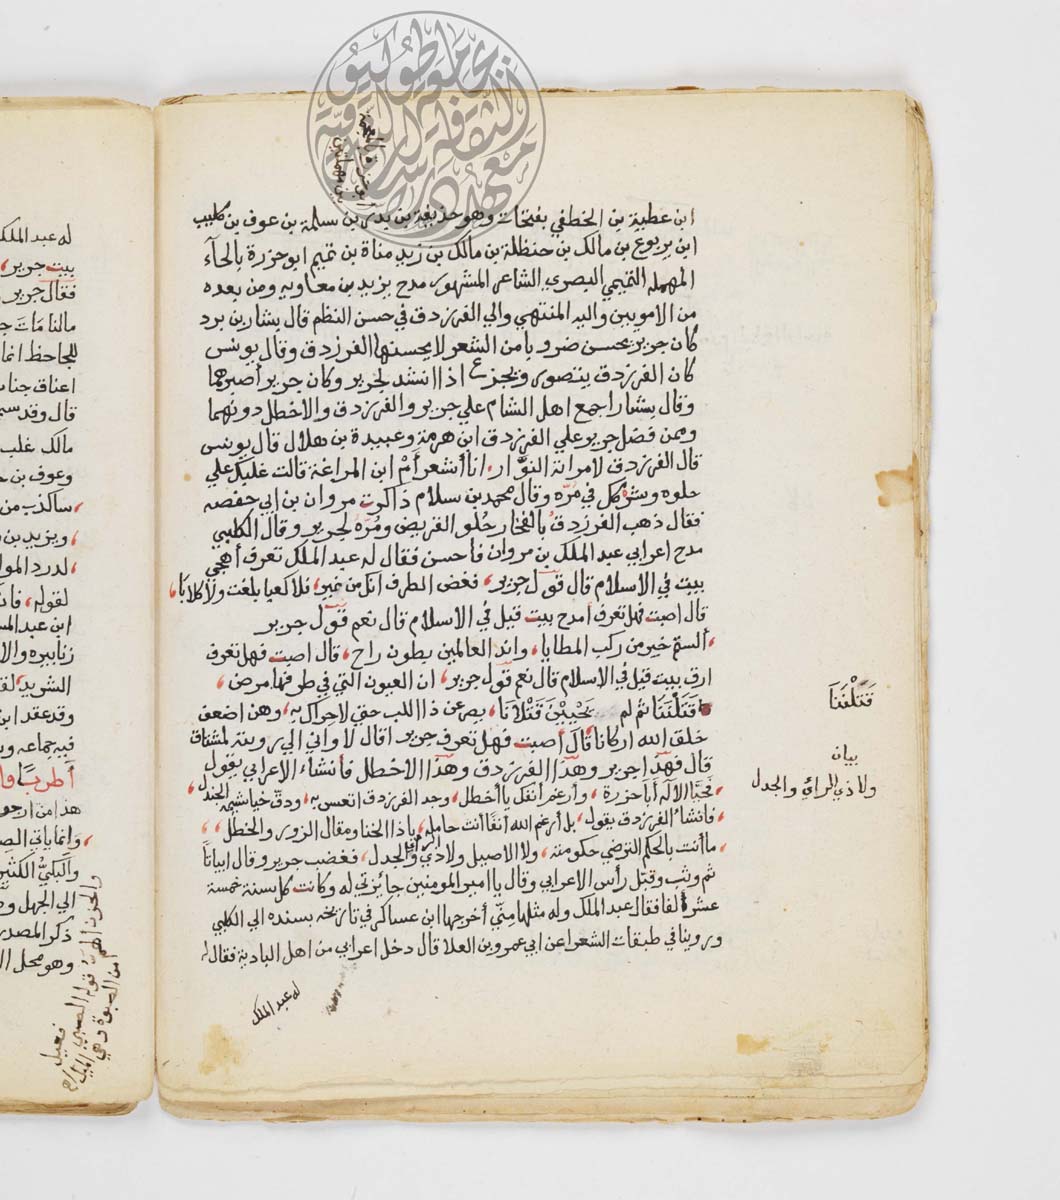 ابن عطية بن الخطفي بفتحات وهو حذيفة بن بدر بن سلمة بن عوف بن كليب
ابن يربوع بن مالك بن حنظلة بن مالك بن زيد مناة بن تميم ابو حزرة بالحآء
المهملة التميمي البصري الشاعر المشهور مدح يزيد بن معاوية ومن بعده
من الامويين واليه المنتهي والي الفرزدق في حسن النظم قال بشار بن برد
كان جرير يحسن ضروبا من الشعر لا يحسنها الفرزدق وقال يونس
كان الفرزدق يتصور ويجزع اذا انشد لجرير وكان جرير أصبرهما
وقال بشار اجمع اهل الشام علي جرير والفرزدق والاخطل دونهما
وممن فضل جرير علي الفرزدق ابن هرمة وعبيدة بن هلال قال يونس
قال الفرزدق لامراته النوَّار انا أشعر أَمْ ابن المراغة قالت غلبك علي
حلوه وشركك في مُرّه وقال محمد بن سلام ذاكرت مروان بن ابي حفصه
فقال ذهب الفرزدق بالفخار حُلو القريض ومُرّه لجرير وقال الكلبي
مدح اعرابي عبد الملك بن مروان فاحسن فقال له عبد الملك تعرف أهجي
بيت في الاسلام قال قول جرير، فغض الطرف انك من نمير، فلا كعبا بلغت ولا كلابا،
قال اصبت فهل تعرف أمدح بيت قيل في الاسلام قال نعم قول جرير
، ألستم خير من ركب المطايا، واندي العالمين بطون راح، قال اصبت فهل تعرف
ارق بيت قيل في الاسلام قال نعم قول جرير، ان العيون التي في طرفها مرض،
قَتَلْنَنَا ثم لم يُحْيِيْنَ قَتْلَانَا، يصرعن ذا اللب حتي لا حراك به، وهن اضعف
خلق الله اركانا قال أصبت فهل تعرف جريرا قال لا واني الي رويته لمشتاق
قال فهذا جرير وهذا الفرزدق وهذا الاخطل فأنشاء الاعرابي يقول
، فحيّا الاله أبا حزرة، وأرغم أنفك يا أخطل، وجد الفرزدق اتعس به، ودق خياشيمه الجندل،
، فانشاء الفرزدق يقول، بل أرغم الله أنفا أنت حامله، يا ذا الخنا ومقال الزور والخطل،،
، ما أنت بالحكم الترضي حكومته، ولا الاصيل ولا ذي الرأي والجدل، فغضب جرير وقال ابياتًا
ثم وثب وقبّل رأس الاعرابي وقال يا امير المومنين جايزتي له وكانت كل سنة خمسة
عشر ألفا فقال عبد الملك وله مثلها مِنّي أخرجها ابن عساكر في تاريخه بسنده الي الكلبي
وروينا في طبقات الشعرا عن ابي عمرو بن العلا قال دخل اعرابي من اهل البادية فقال له
له عبد الملك
قَتَلْنَنَا
بيان
ولا ذي الرائي والجدل
له عبد الملك
بيت جرير،
فقال جرير
للجاحظ انما
اعناق جنا
قال وقد سم
مالك غلب
وعوف بن
، ساكذب من
، ويزيد بن
لقوله، فان
ابن عبد الم
زنابيره والا
وقد عقد ابن
فيه جماعه و
أطربًا
هذا من ارجو
الي الجهل و
ذكر المصدر
وهو محل ال